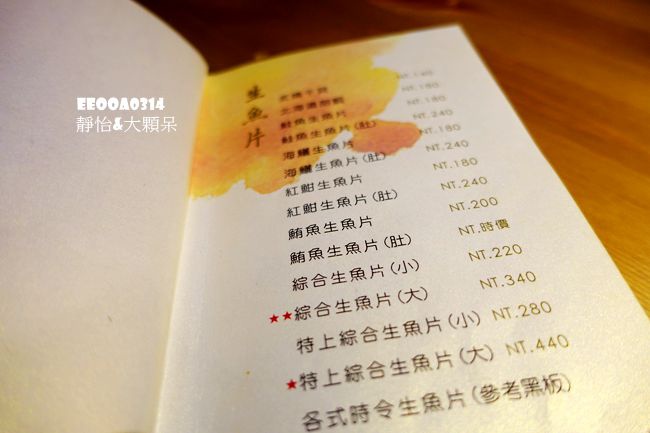 EEOOA0314
靜怡&大顆呆
生魚片
炙燒干貝 NT.140
北海道甜蝦 NT.180
鮭魚生魚片 NT.180
鮭魚生魚片(肚) NT.240
海鱺生魚片 NT.180
海鱺生魚片(肚) NT.240
紅魽生魚片 NT.180
紅魽生魚片(肚) NT.240
鮪魚生魚片 NT.200
鮪魚生魚片(肚) NT.時價
綜合生魚片(小) NT.220
★★綜合生魚片(大) NT.340
特上綜合生魚片(小) NT.280
★特上綜合生魚片(大) NT.440
各式時令生魚片(參考黑板)